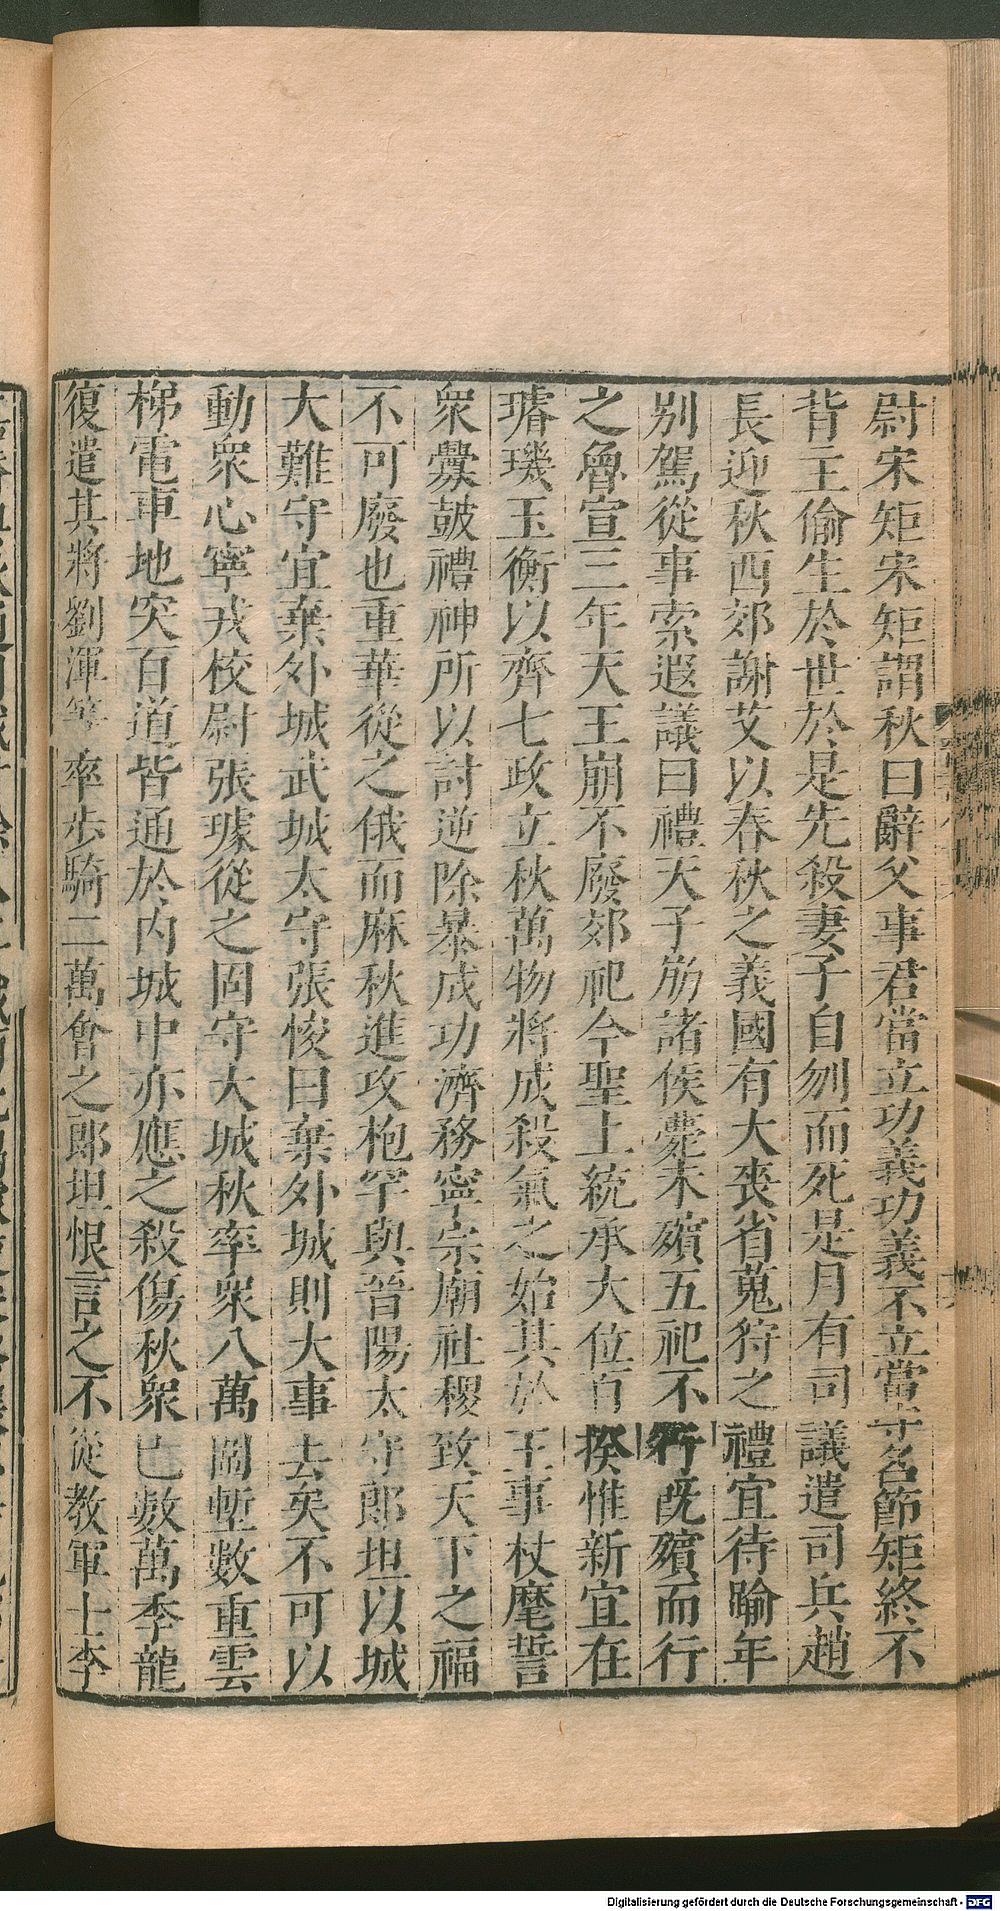 尉宋矩宋矩謂秋曰辭父事君當立功義功義不立當守名節矩終不
背主偷生於世於是先殺妻子自刎而死是月有司議遣司兵趙
長迎秋西郊謝艾以春秋之義國有大喪省蒐狩之禮宜待踰年
別駕從事索遐議曰禮天子崩諸侯薨未殯五祀不行旣殯而行
之魯宣三年天王崩不廢郊祀今聖上統承大位百揆惟新宜在
璿璣玉衡以齊七政立秋萬物將成殺氣之始其於王事杖麾誓
衆釁鼓禮神所以討逆除暴成功濟務寧宗廟社稷致天下之福
不可廢也重華從之俄而麻秋進攻枹罕與晉陽太守郎坦以城
大難守宜棄外城武城太守張悛曰棄外城則大事去矣不可以
動衆心寧戎校尉張璩從之固守大城秋率衆八萬圍塹數重雲
梯電車地突百道皆通於内城中亦應之殺傷秋衆已數萬季龍
復遣其將劉渾等率步騎二萬會之郎坦恨言之不從教軍士李
Digitalisierung gefördert durch die Deutsche Forschungsgemeinschaft - DFG